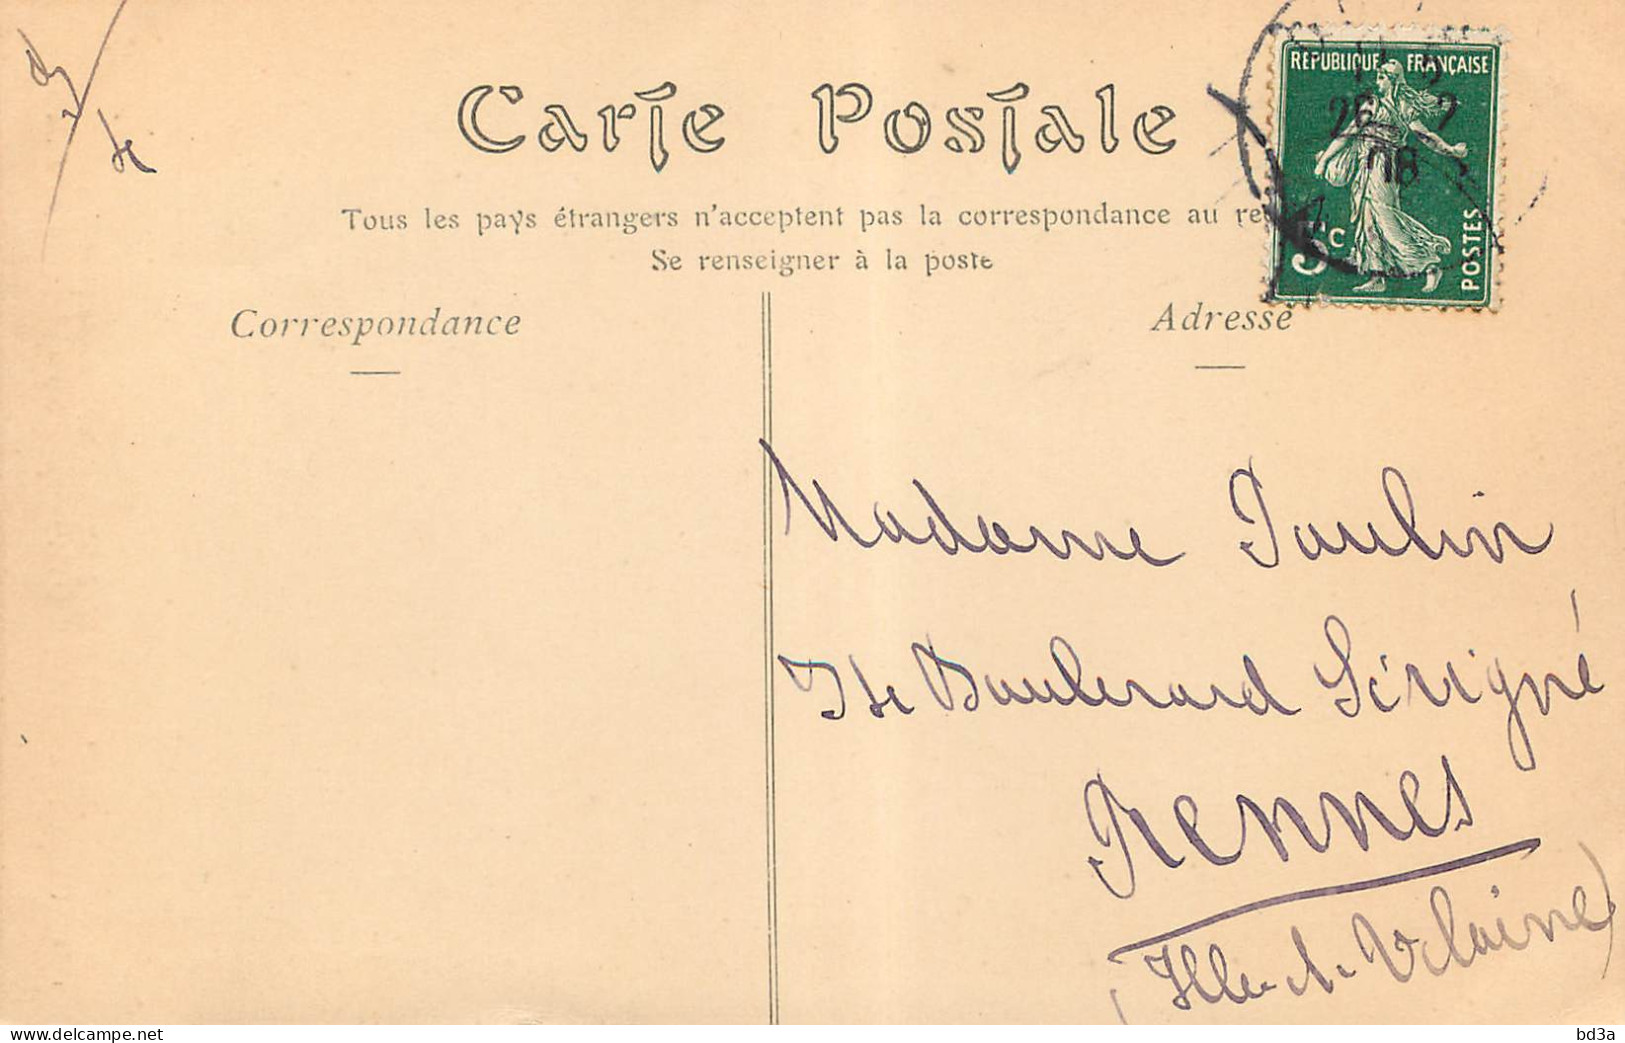 Carte Postale
RÉPUBLIQUE FRANÇAISE
26 2
08
5 c
POSTES
Tous les pays étrangers n'acceptent pas la correspondance au re
Se renseigner à la poste
Correspondance
Adresse
Madame Paulin
Boulevard Sévigné
Rennes
(Ille-et-Vilaine)
delcampe.net
bd3a